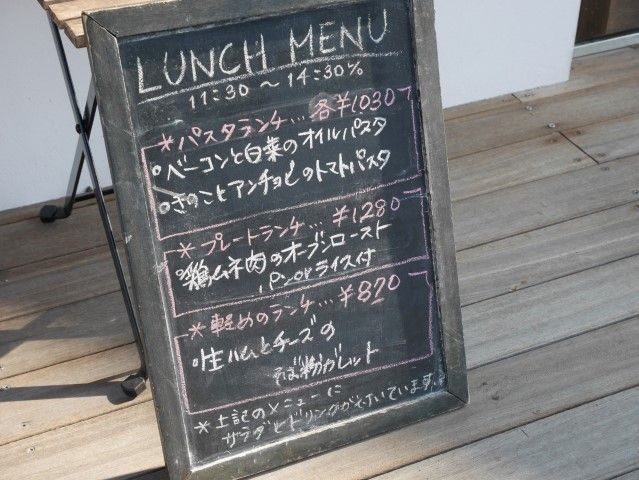 LUNCH MENU
11:30 ~ 14:30%
*パスタランチ… 各¥1030
・ベーコンと白菜のオイルパスタ
・きのことアンチョビのトマトパスタ
*プレートランチ… ¥1280
・鶏ムネ肉のオーブンロースト
パンorライス付
*軽めのランチ… ¥870
・生ハムとチーズの
そば粉ガレット
*上記のメニューに
サラダとドリンクが付いています。